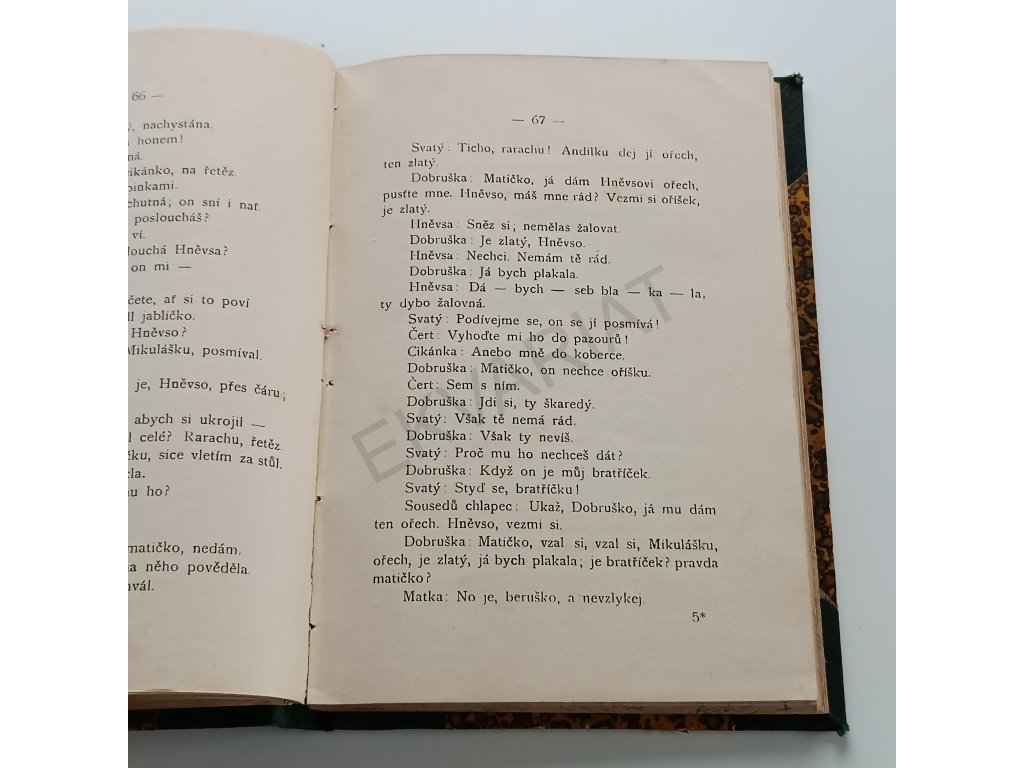 66 —
nachystána.
honem!
ná.
cikánko, na řetěz.
pinkami.
chutná; on sní i nať.
posloucháš?
ví.
louchá Hněvsa?
on mi —
čete, ať si to poví
ll jablíčko.
Hněvso?
Mikulášku, posmíval.
je, Hněvso, přes čáru;
abych si ukrojil —
l celé? Rarachu, řetěz.
čku, sice vletím za stůl.
ela.
nu ho?
matičko, nedám.
na něho pověděla.
hvál.
— 67 —
Svatý: Ticho, rarachu! Andílku dej jí ořech,
ten zlatý.
Dobruška: Matičko, já dám Hněvsovi ořech,
pusťte mne. Hněvso, máš mne rád? Vezmi si oříšek,
je zlatý.
Hněvsa: Sněz si; nemělas žalovat.
Dobruška: Je zlatý, Hněvso.
Hněvsa: Nechci. Nemám tě rád.
Dobruška: Já bych plakala.
Hněvsa: Dá — bych — seb bla — ka — la,
ty dybo žalovná.
Svatý: Podívejme se, on se jí posmívá!
Čert: Vyhoďte mi ho do pazourů!
Cikánka: Anebo mně do koberce.
Dobruška: Matičko, on nechce oříšku.
Čert: Sem s ním.
Dobruška: Jdi si, ty škaredý.
Svatý: Však tě nemá rád.
Dobruška: Však ty nevíš.
Svatý: Proč mu ho nechceš dát?
Dobruška: Když on je můj bratříček.
Svatý: Styď se, bratříčku!
Sousedů chlapec: Ukaž, Dobruško, já mu dám
ten ořech. Hněvso, vezmi si.
Dobruška: Matičko, vzal si, vzal si, Mikulášku,
ořech, je zlatý, já bych plakala; je bratříček? pravda
matičko?
Matka: No je, beruško, a nevzlykej.
5*
EKVARIAT